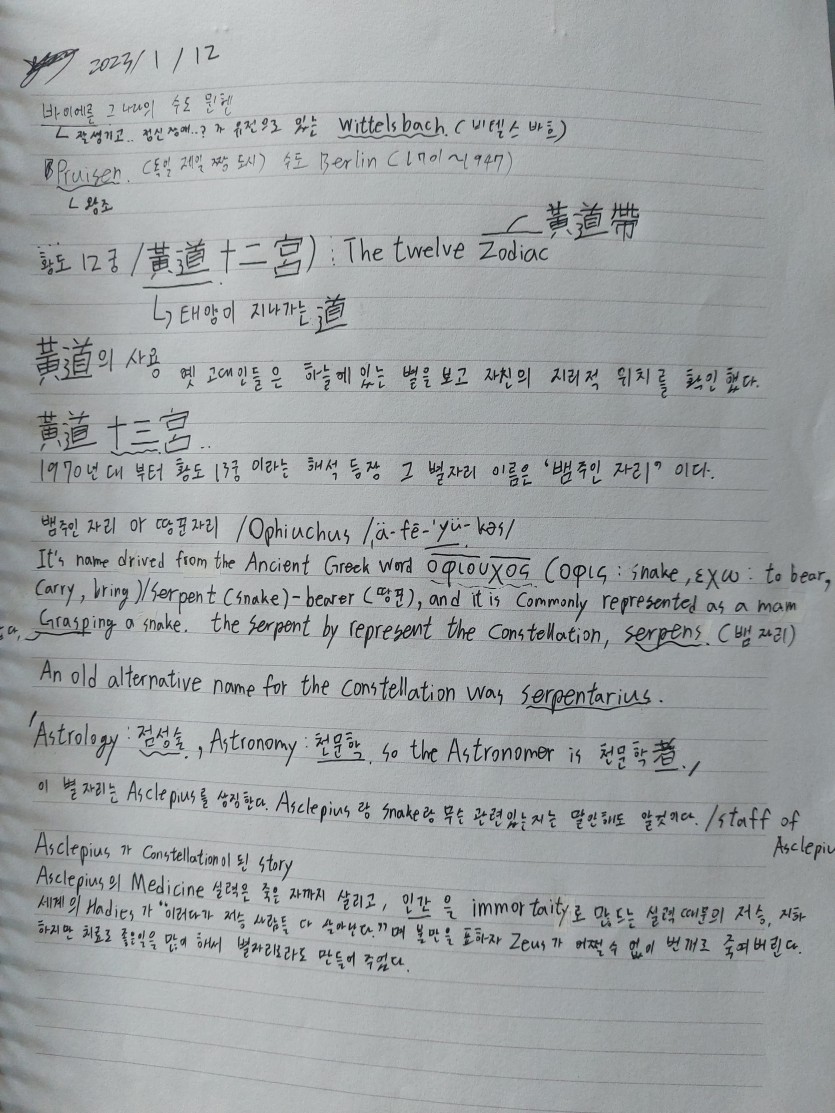 2023/1/12
바이에른 그 나라의 수도 뮌헨
ㄴ 잘생기고.. 정신장애..? 가 유전으로 있는 Wittelsbach. (비텔스 바흐)
Pruisen. (독일 제일 짱 도시) 수도 Berlin (1701~1947)
ㄴ 왕조
黃道帶
황도 12궁 /黃道十二宮) : The twelve Zodiac
↳ 태양이 지나가는 道
黃道의 사용 옛 고대인들은 하늘에 있는 별을 보고 자신의 지리적 위치를 확인했다.
黃道 十三宮..
1970년대 부터 황도 13궁 이라는 해석 등장 그 별자리 이름은 '뱀주인 자리" 이다.
뱀주인 자리 아 땅꾼자리 /Ophiuchus /ˌä-fē-ˈyü-kəs/
It's name drived from the Ancient Greek word οφιουχος (οφις : snake, εχω : to bear,
carry, bring)/serpent (snake)-bearer (땅꾼), and it is commonly represented as a mam
Grasping a snake. the serpent by represent the constellation, serpens. (뱀 자리)
An old alternative name for the constellation was serpentarius.
'Astrology : 점성술, Astronomy : 천문학. so the Astronomer is 천문학者./
이 별자리는 Asclepius를 상징한다. Asclepius 랑 snake랑 무슨 관련있는지는 말안해도 알것이다. /staff of
Asclepiu
Asclepius 가 Constellation이 된 story
Asclepius의 Medicine 실력은 죽은 자까지 살리고, 인간을 immortaity로 만드는 실력 때문의 저승, 지하
세계의 Hadies가 "이러다가 저승 사람들 다 살아난다."며 불만을 표하자 Zeus가 어쩔 수 없이 번개로 죽여버린다.
하지만 치료로 좋은일을 많이 해서 별자리로라도 만들어 주었다.